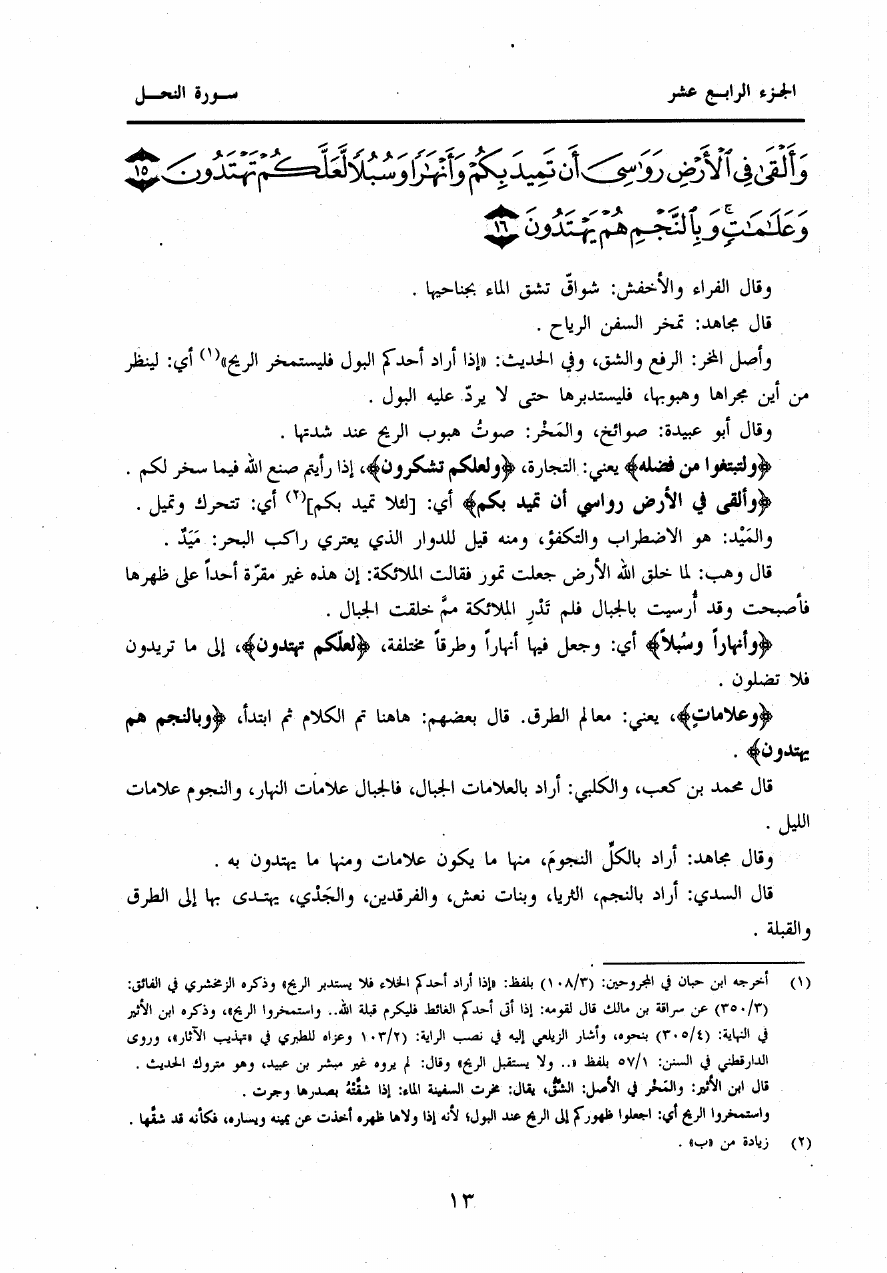 الجزء الرابع عشر
سورة النحل
وَأَلْقَىٰ فِي ٱلْأَرْضِ رَوَٰسِيَ أَن تَمِيدَ بِكُمْ وَأَنْهَٰرًا وَسُبُلًا لَّعَلَّكُمْ تَهْتَدُونَ ١٥
وَعَلَٰمَٰتٍ ۚ وَبِٱلنَّجْمِ هُمْ يَهْتَدُونَ ١٦
وقال الفراء والأخفش: شواقّ تشق الماء بجناحيها .
قال مجاهد: تمخر السفن الرياح .
وأصل المخر: الرفع والشق، وفي الحديث: «إذا أراد أحدكم البول فليستمخر الريح»(١) أي: لينظر
من أين مجراها وهبوبها، فليستدبرها حتى لا يردّ عليه البول .
وقال أبو عبيدة: صوائخ، والمَخْر: صوتُ هبوب الريح عند شدتها .
﴿ولتبتغوا من فضله﴾ يعني: التجارة، ﴿ولعلكم تشكرون﴾، إذا رأيتم صنع الله فيما سخر لكم .
﴿وألقى في الأرض رواسي أن تميد بكم﴾ أي: [لئلا تميد بكم](٢) أي: تتحرك وتميل .
والمَيْد: هو الاضطراب والتكفؤ، ومنه قيل للدوار الذي يعتري راكب البحر: مَيَدٌ .
قال وهب: لما خلق الله الأرض جعلت تمور فقالت الملائكة: إن هذه غير مقرّة أحداً على ظهرها
فأصبحت وقد أُرسيت بالجبال فلم تَدْرِ الملائكة ممَّ خلقت الجبال .
﴿وأنهاراً وسُبلاً﴾ أي: وجعل فيها أنهاراً وطرقاً مختلفة، ﴿لعلّكم تهتدون﴾، إلى ما تريدون
فلا تضلون .
﴿وعلاماتٍ﴾، يعني: معالم الطرق. قال بعضهم: هاهنا تم الكلام ثم ابتدأ، ﴿وبالنجم هم
يهتدون﴾ .
قال محمد بن كعب، والكلبي: أراد بالعلامات الجبال، فالجبال علامات النهار، والنجوم علامات
الليل .
وقال مجاهد: أراد بالكلِّ النجومَ، منها ما يكون علامات ومنها ما يهتدون به .
قال السدي: أراد بالنجم، الثريا، وبنات نعش، والفرقدين، والجَدْي، يهتدى بها إلى الطرق
والقبلة .
(١) أخرجه ابن حبان في المجروحين: (١٠٨/٣) بلفظ: «إذا أراد أحدكم الخلاء فلا يستدبر الريح» وذكره الزمخشري في الفائق:
(٣٥٠/٣) عن سراقة بن مالك قال لقومه: إذا أتى أحدكم الغائط فليكرم قبلة الله.. واستمخروا الريح»، وذكره ابن الأثير
في النهاية: (٣٠٥/٤) بنحوه، وأشار الزيلعي إليه في نصب الراية: ١٠٣/٢ وعزاه للطبري في «تهذيب الآثار»، وروى
الدارقطني في السنن: ٥٧/١ بلفظ «.. ولا يستقبل الريح» وقال: لم يروه غير مبشر بن عبيد، وهو متروك الحديث .
قال ابن الأثير: والمَخْر في الأصل: الشَّقُّ، يقال: مخرت السفينة الماء: إذا شقَّتْهُ بصدرها وجرت .
واستمخروا الريح أي: اجعلوا ظهوركم إلى الريح عند البول؛ لأنه إذا ولاها ظهره أخذت عن يمينه ويساره، فكأنه قد شقّها .
(٢) زيادة من «ب» .
١٣